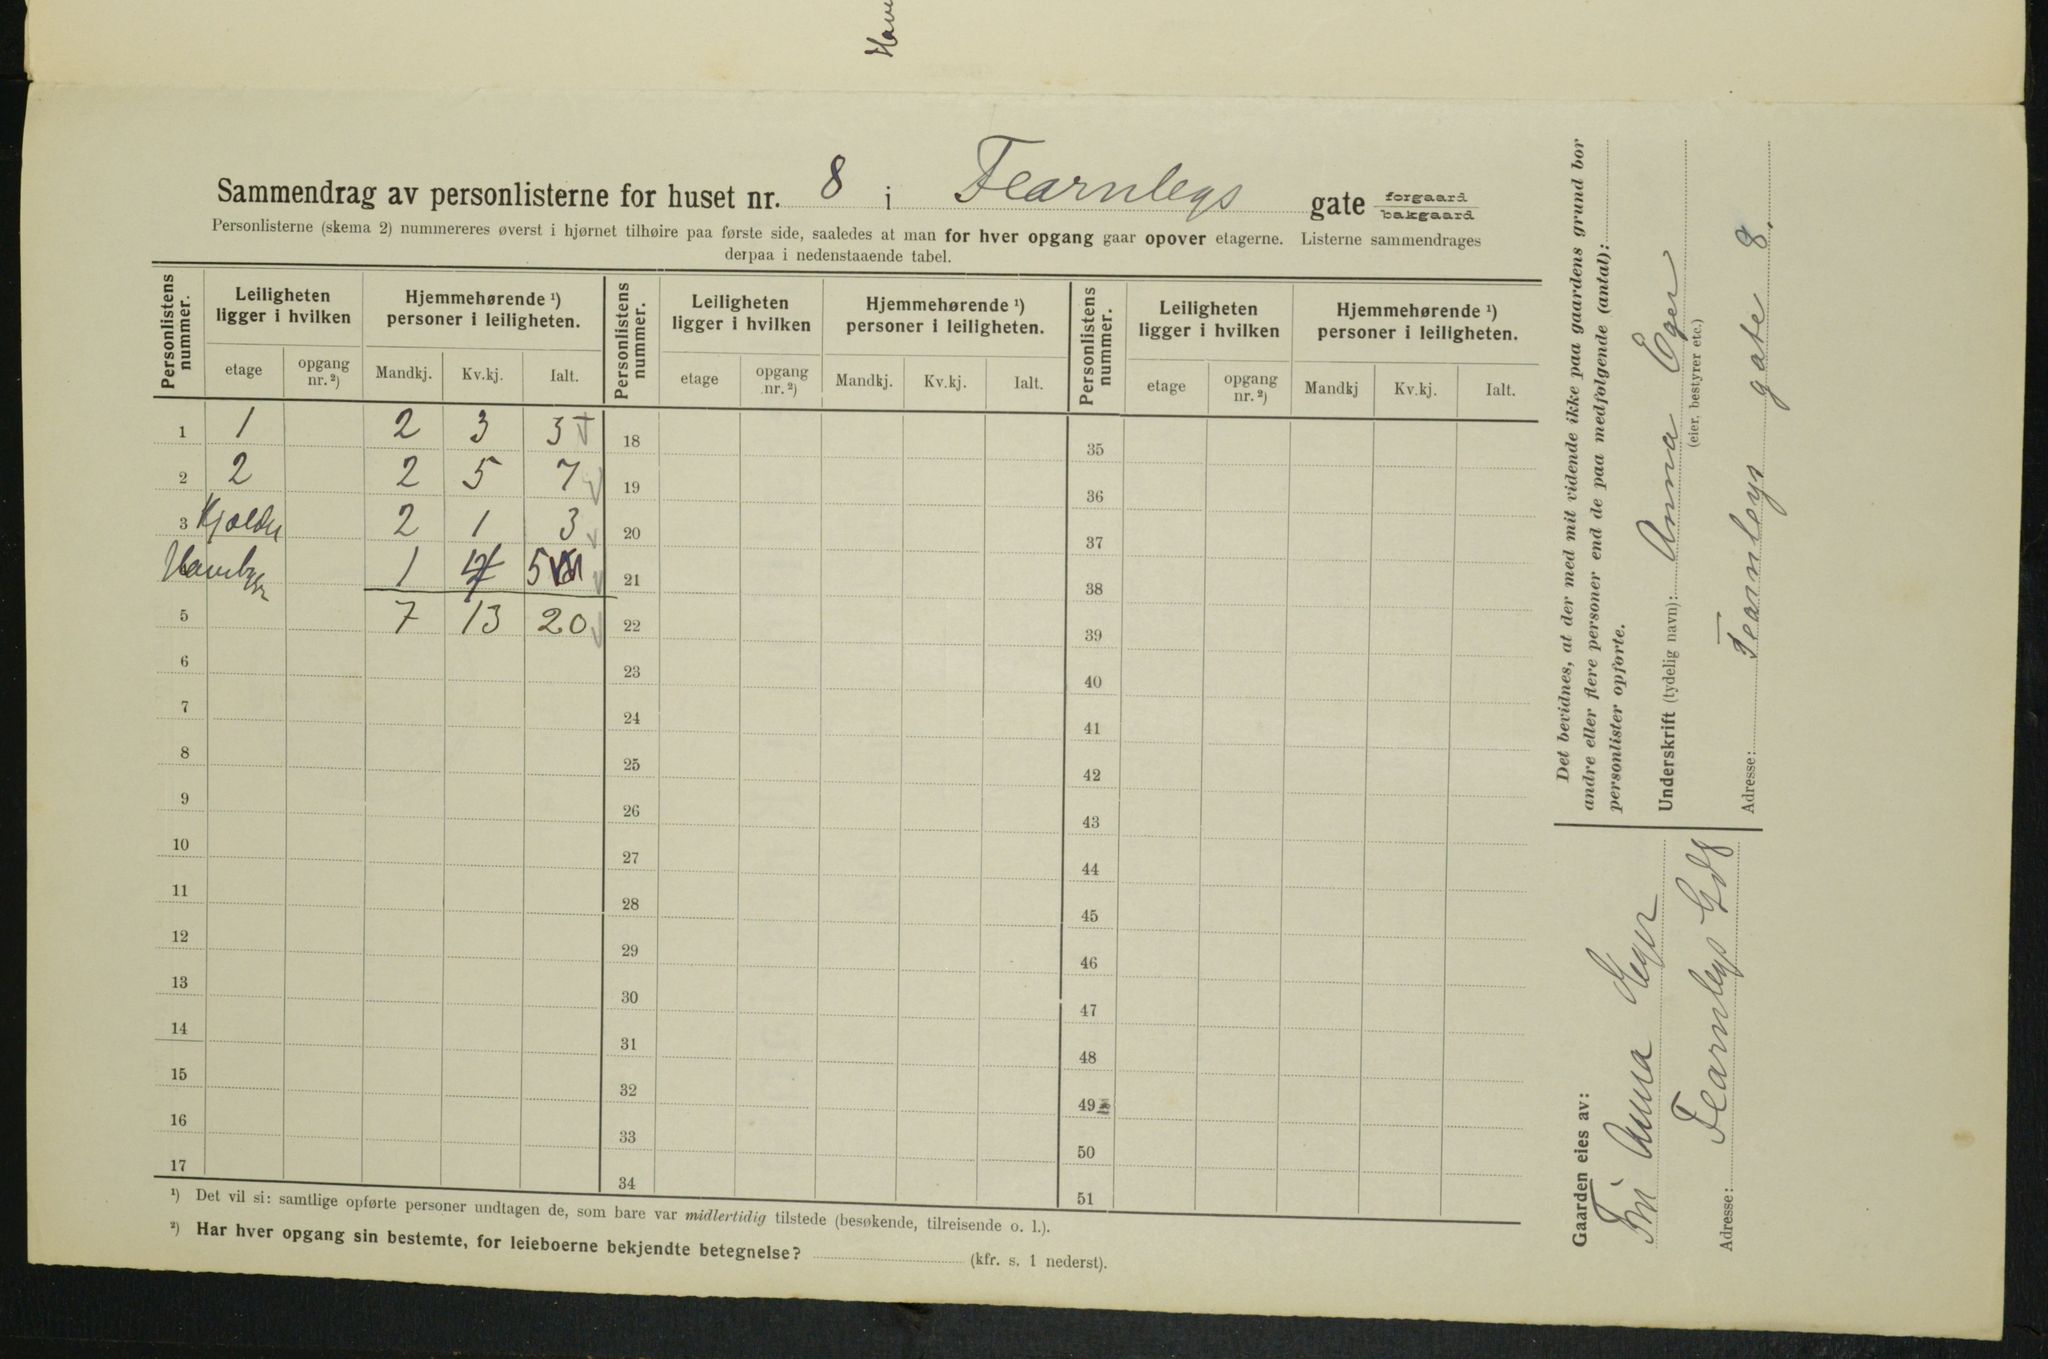 Havn
Sammendrag av personlisterne for huset nr. 8 i Fearnleys gate forgaard bakgaard
Personlisterne (skema 2) nummereres øverst i hjørnet tilhøire paa første side, saaledes at man for hver opgang gaar opover etagerne. Listerne sammendrages
derpaa i nedenstaaende tabel.
Personlistens nummer. Leiligheten ligger i hvilken Hjemmehørende ¹) personer i leiligheten. Personlistens nummer. Leiligheten ligger i hvilken Hjemmehørende ¹) personer i leiligheten. Personlistens nummer. Leiligheten ligger i hvilken Hjemmehørende ¹) personer i leiligheten.
etage opgang nr. ²) Mandkj. Kv.kj. Ialt. etage opgang nr. ²) Mandkj. Kv.kj. Ialt. etage opgang nr. ²) Mandkj Kv.kj. Ialt.
1 1 2 3 5 18 35
2 2 2 5 7 19 36
3 Kjælder 2 1 3 20 37
1 4 5 21 38
5 7 13 20 22 39
6 23 40
7 24 41
8 25 42
9 26 43
10 27 44
11 28 45
12 29 46
13 30 47
14 31 48
15 32 49
16 33 50
17 34 51
¹) Det vil si: samtlige opførte personer undtagen de, som bare var midlertidig tilstede (besøkende, tilreisende o. l.).
²) Har hver opgang sin bestemte, for leieboerne bekjendte betegnelse? (kfr. s. 1 nederst).
Det bevidnes, at der med mit vidende ikke paa gaardens grund bor
andre eller flere personer end de paa medfølgende (antal):
personlister opførte.
Underskrift (tydelig navn): Anna Eger
(eier, bestyrer etc.)
Adresse: Fearnleys gate 8.
Gaarden eies av:
Frk Anna Eger
Adresse: Fearnleys Gd 8